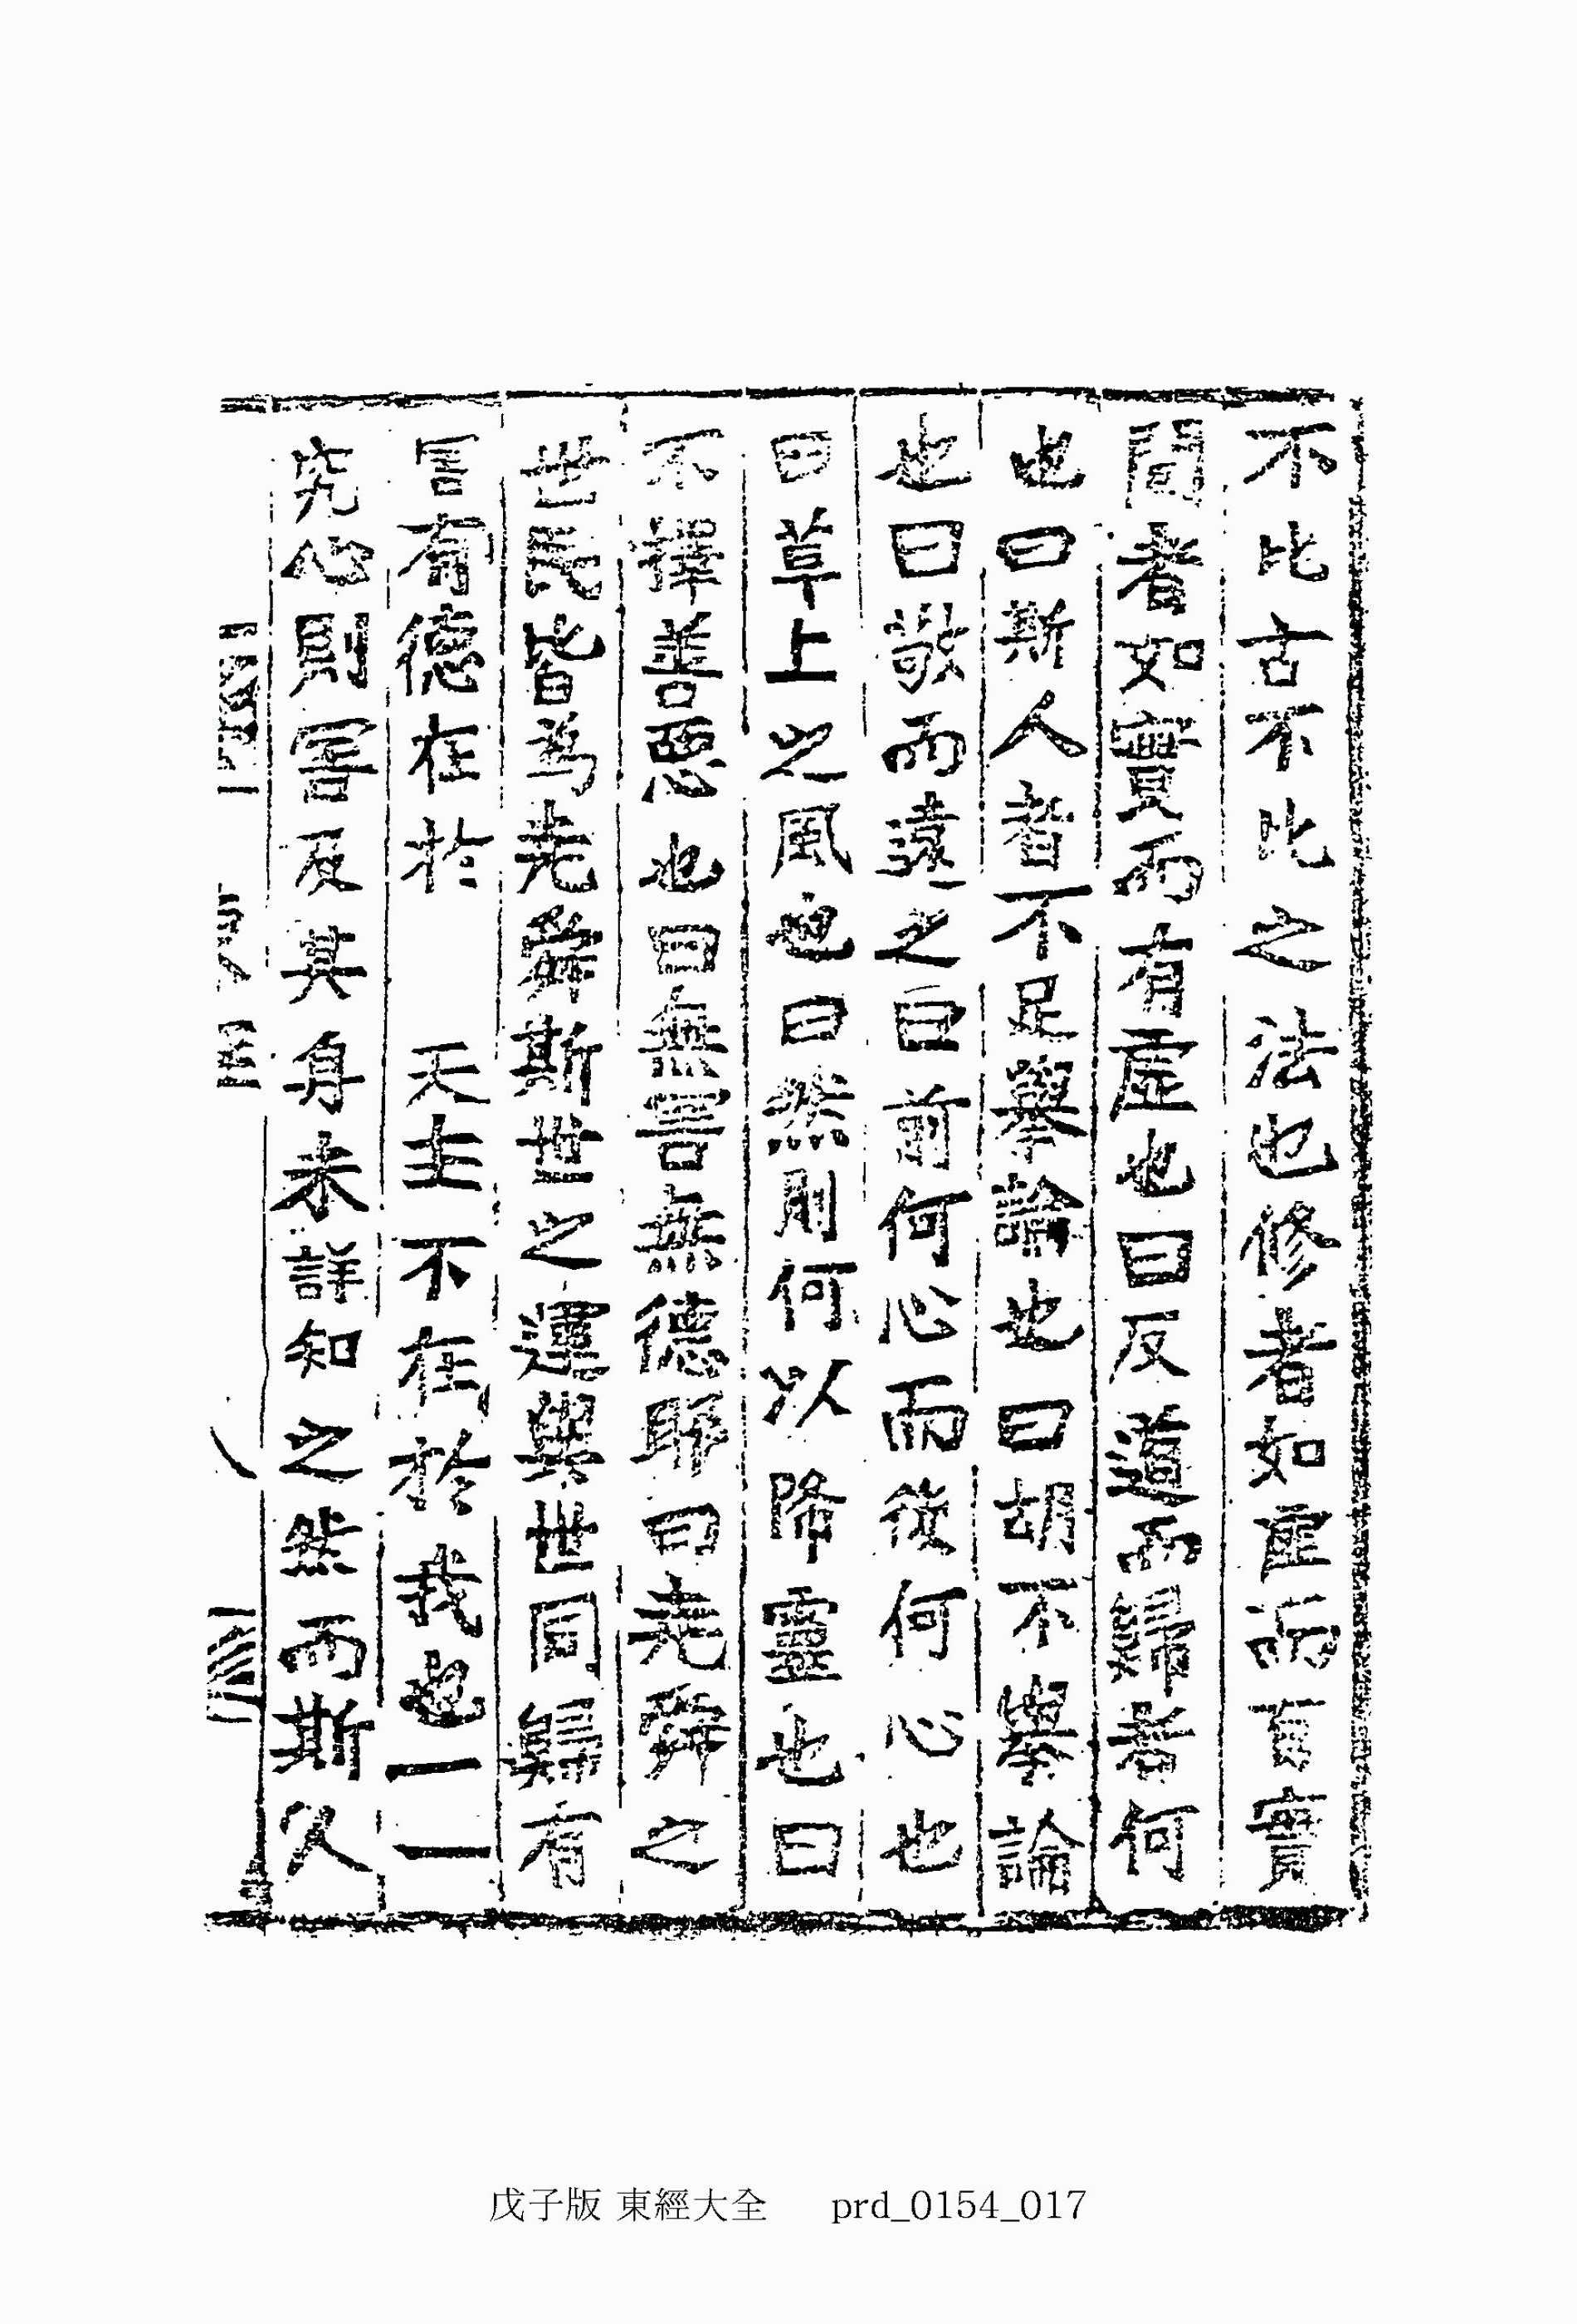 不比古不比之法也修者如虛而有實
聞者如實而有虛也曰反道而歸者何
也曰斯人者不足擧論也曰胡不擧論
也曰敬而遠之曰前何心而後何心也
曰草上之風也曰然則何以降靈也曰
不擇善惡也曰無害無德耶曰堯舜之
世民皆爲堯舜斯世之運與世同歸有
害有德在於 天主不在於我也一一
究心則害及其身未詳知之然而斯久
戊子版 東經大全 prd_0154_017